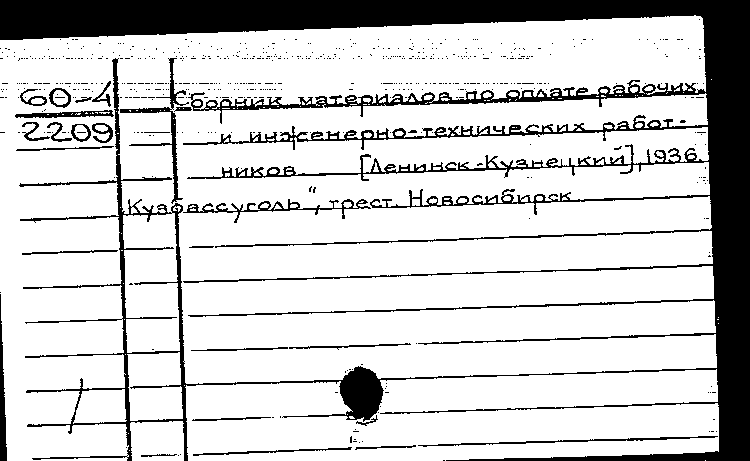 60-4 Сборник материалов по оплате рабочих
2209 и инженерно-технических работ-
ников [Ленинск-Кузнецкий], 1936.
Кузбассуголь", трест. Новосибирск